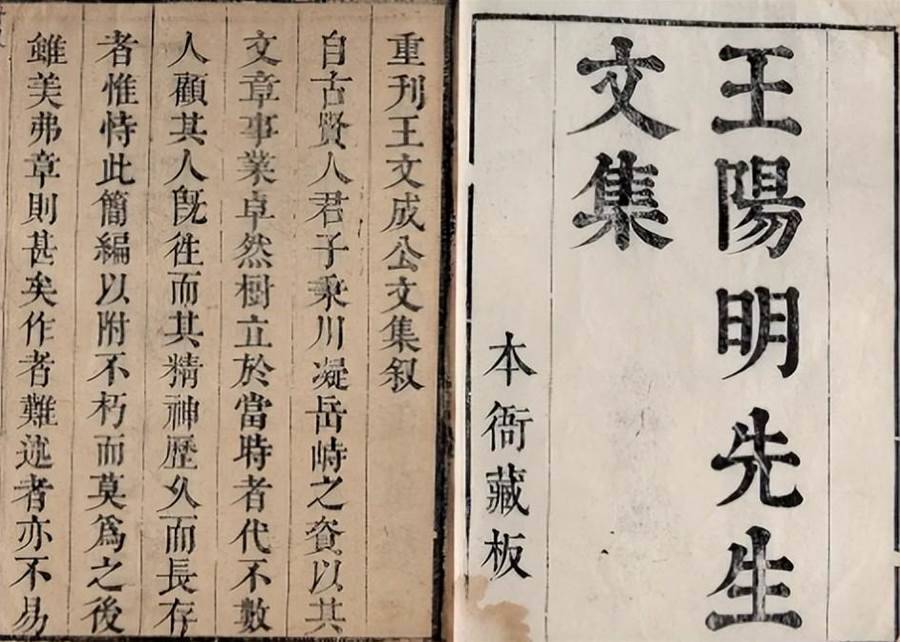 王陽明先生
文集
本衙藏板
重刊王文成公文集叙
自古賢人君子乘川凝岳峙之資以其
文章事業卓然樹立於當時者代不數
人顧其人既徃而其精神歷久而長存
者惟恃此簡編以附不朽而莫爲之後
雖美弗章則甚矣作者難述者亦不易